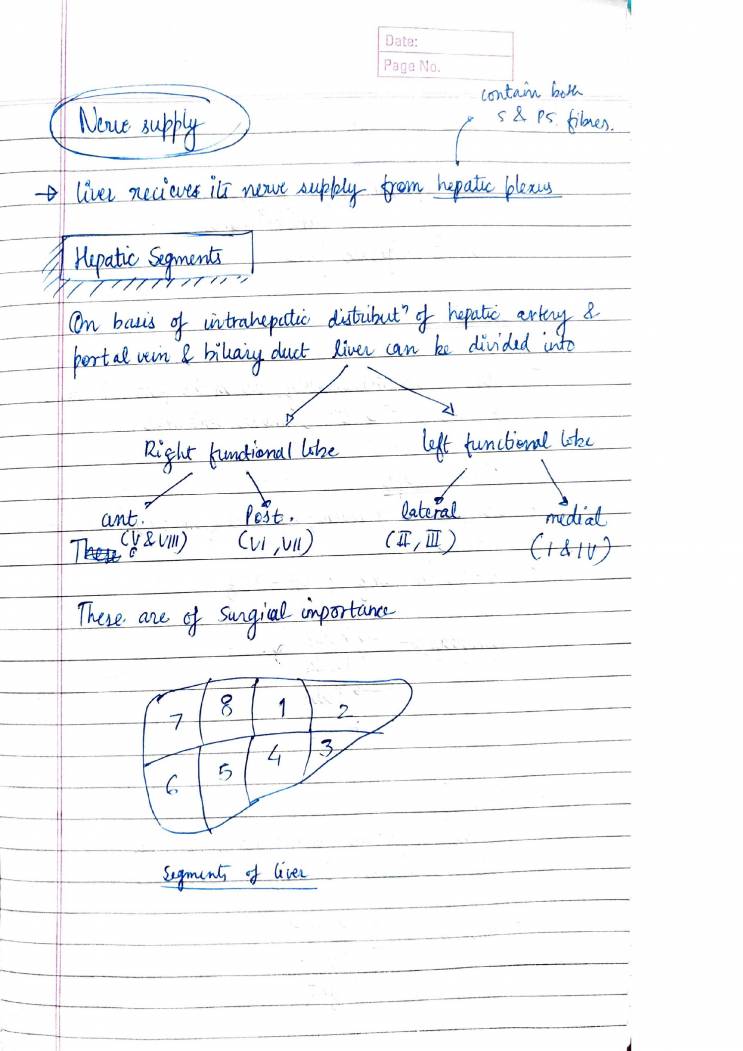 Date:
Page No.
contain both
S & PS. fibres.
Nerve supply
→ liver recieves its nerve supply from hepatic plexus
Hepatic Segments
On basis of intrahepatic distributⁿ of hepatic artery &
portal vein & biliary duct liver can be divided into
Right functional lobe left functional lobe
ant. Post. lateral medial
(V & VIII) (VI, VII) (II, III) (I & IV)
These
These are of Surgical importance
7 8 1 2
6 5 4 3
Segments of liver